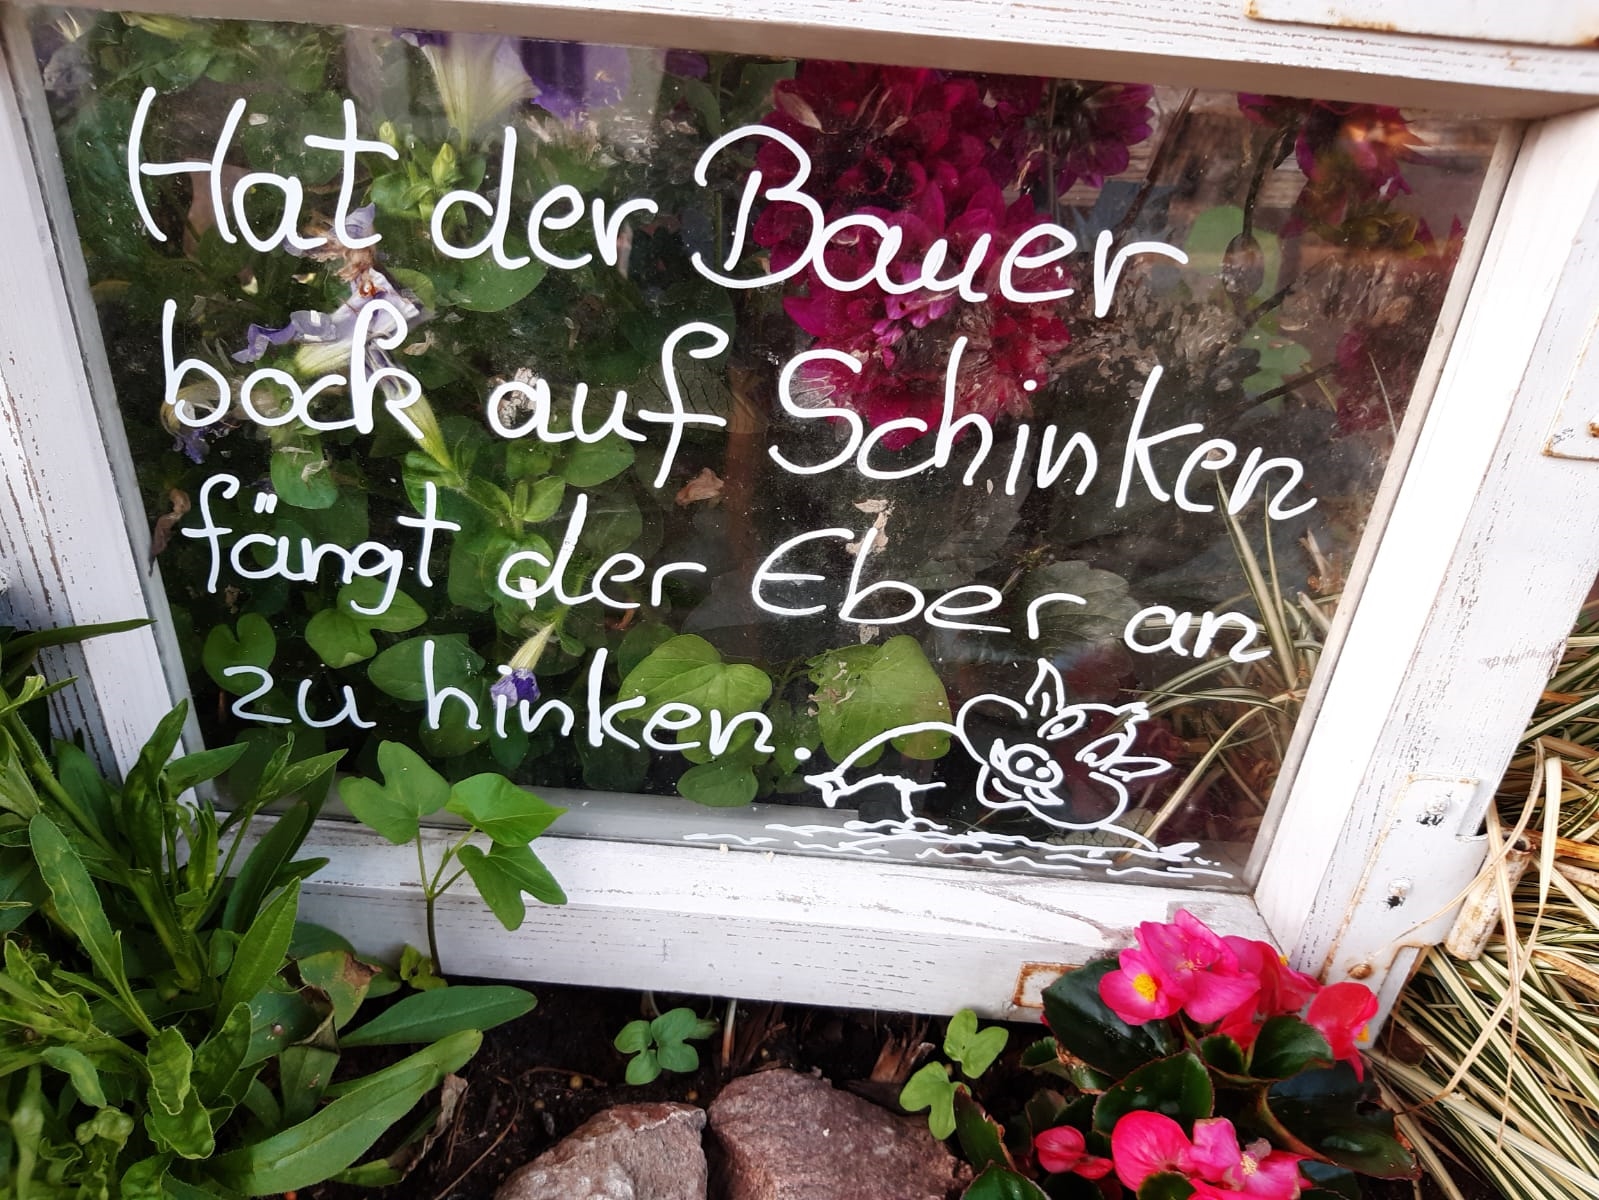 Hat der Bauer
bock auf Schinken
fängt der Eber an
zu hinken.